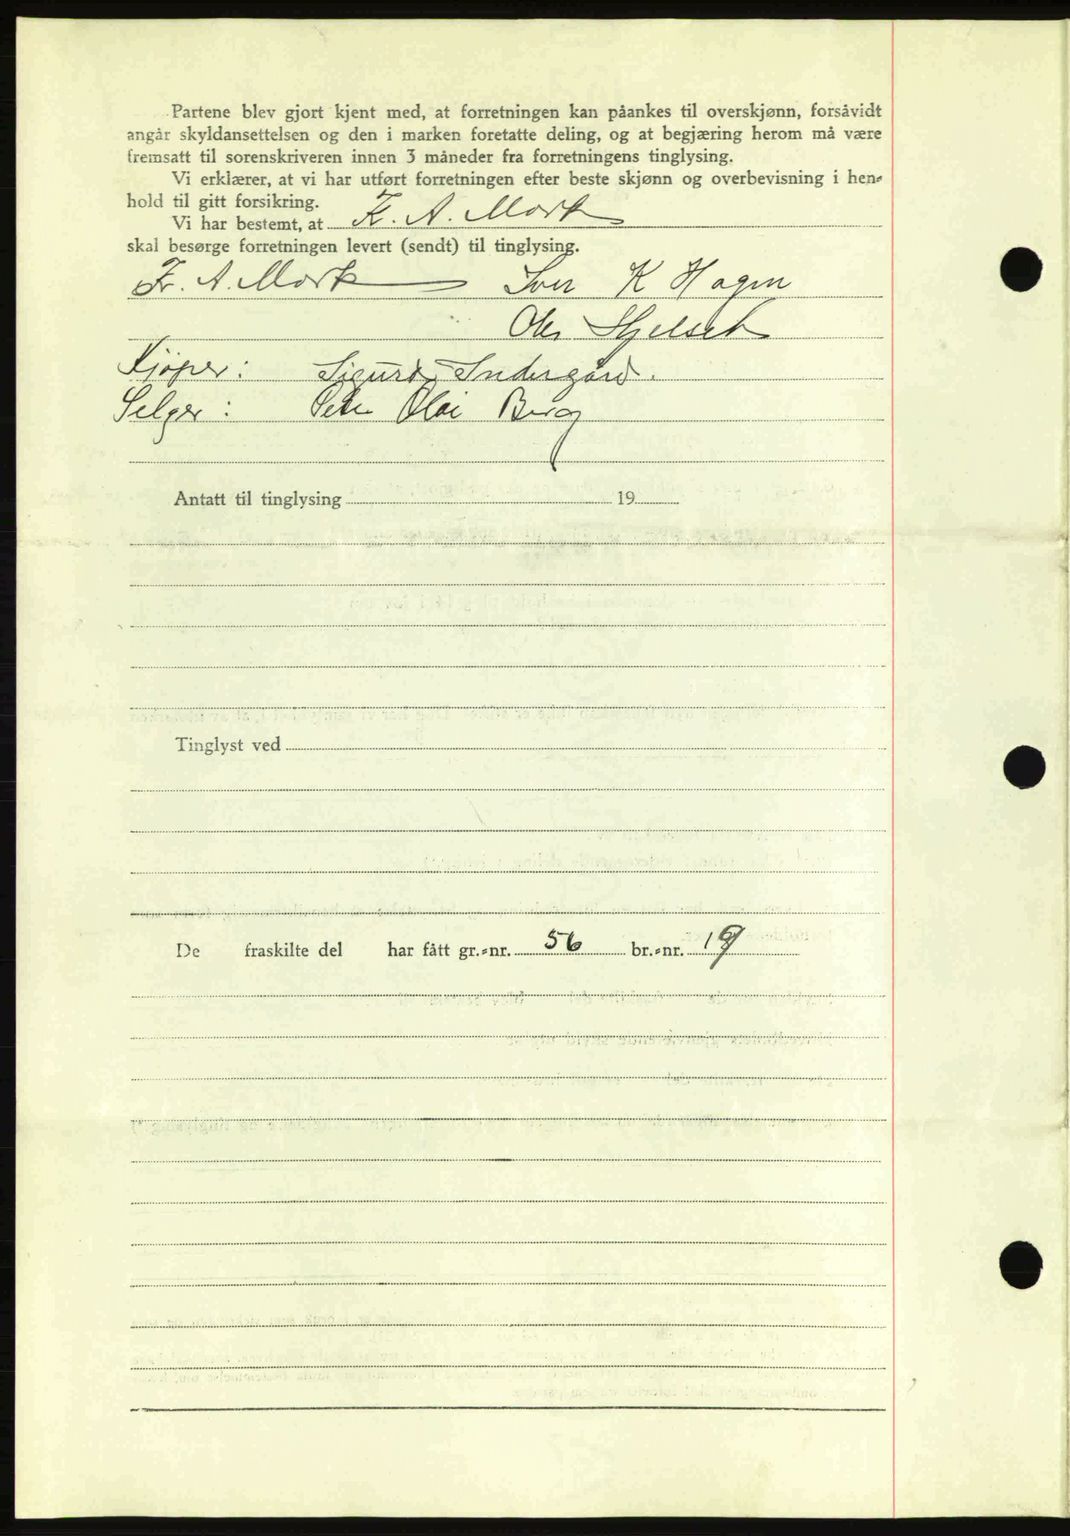 Partene blev gjort kjent med, at forretningen kan påankes til overskjønn, forsåvidt
angår skyldansettelsen og den i marken foretatte deling, og at begjæring herom må være
fremsatt til sorenskriveren innen 3 måneder fra forretningens tinglysing.
Vi erklærer, at vi har utført forretningen efter beste skjønn og overbevisning i hen-
hold til gitt forsikring.
Vi har bestemt, at Fr. A. Mork
skal besørge forretningen levert (sendt) til tinglysing.
Fr. A. Mork Iver K Hagen
Ole Hjelset
Kjøper: Sigurd Indergård.
Selger: Peter Olai Berg
Antatt til tinglysing 19
Tinglyst ved
De fraskilte del har fått gr.-nr. 56 br.-nr. 19